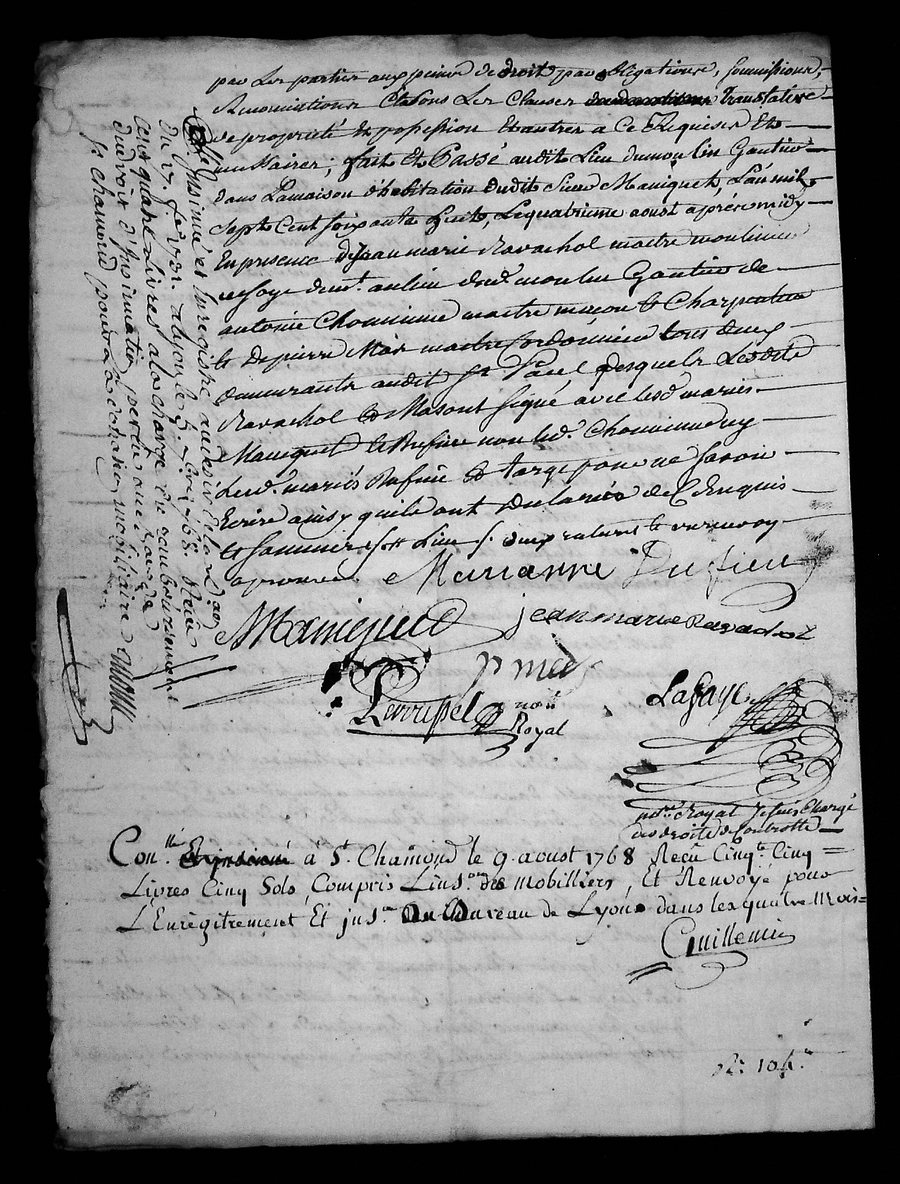 par Les parties aux peines de droit, par obligations, soumissions,
Renonciations Clauses translative
de propriété et possession et autres a ce Requises Et
necessaires; fait et Passé audit Lieu dumoulin Gautier
dans Lamaison d'habitation dudit sieur Maniquet, L'an mil
Sept Cent soixante huit, Lequatrieme aoust apres midy
En presence de Jean marie Ravachol maitre moulinier
en soye demt. au lieu dud. moulin Gautier de
antoine Chomienne maitre maçon & Charpentier
& de pierre Mas maitre Cordonnier tous deux
demeurants audit St Paul desquels Lesdits
Ravachol & Mas ont signé avec lesd. mariés
Maniquet & non led. Chomienne ny
Lesd. mariés & targe pour ne savoir
Ecrire ainsy quils ont declarés de ce Enquis
& sommés ratures & renvoy
aprouvés.
Marianne Dufieu
Maniquet
jean marie Ravachol
p mas
not.
Royal
Lafaye
notre. Royal
des droits de Controlle
Conlle. à St. Chamond le 9. aoust 1768 Reçu Cinqte. Cinq
Livres Cinq Sols, Compris L'ins.on des Mobilliers, et Renvoyé pour
L'Enregitrement Et ins.on au Bureau de Lyon dans les quatre Mois
Guillemin
Insinué et enregistré au desir de la
du 17. fevr. 1731. a Lyon le 7bre 1768. Reçu
cinquante Livres a la charge du
du droit d'insinuation perçu au bureau de
St chamond pour mobiliaire